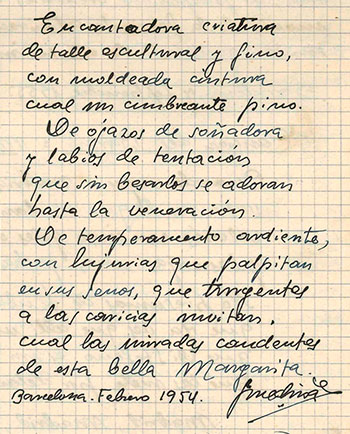 Encantadora criatura
de talle escultural y fino,
con moldeada cintura
cual un cimbreante pino.
De ojazos de soñadora
y labios de tentación
que sin besarlos se adoran
hasta la veneración.
De temperamento ardiente,
con lujurias que palpitan
en sus senos, que turgentes
a las caricias invitan,
cual las miradas candentes
de esta bella Margarita.
Barcelona. Febrero 1954.